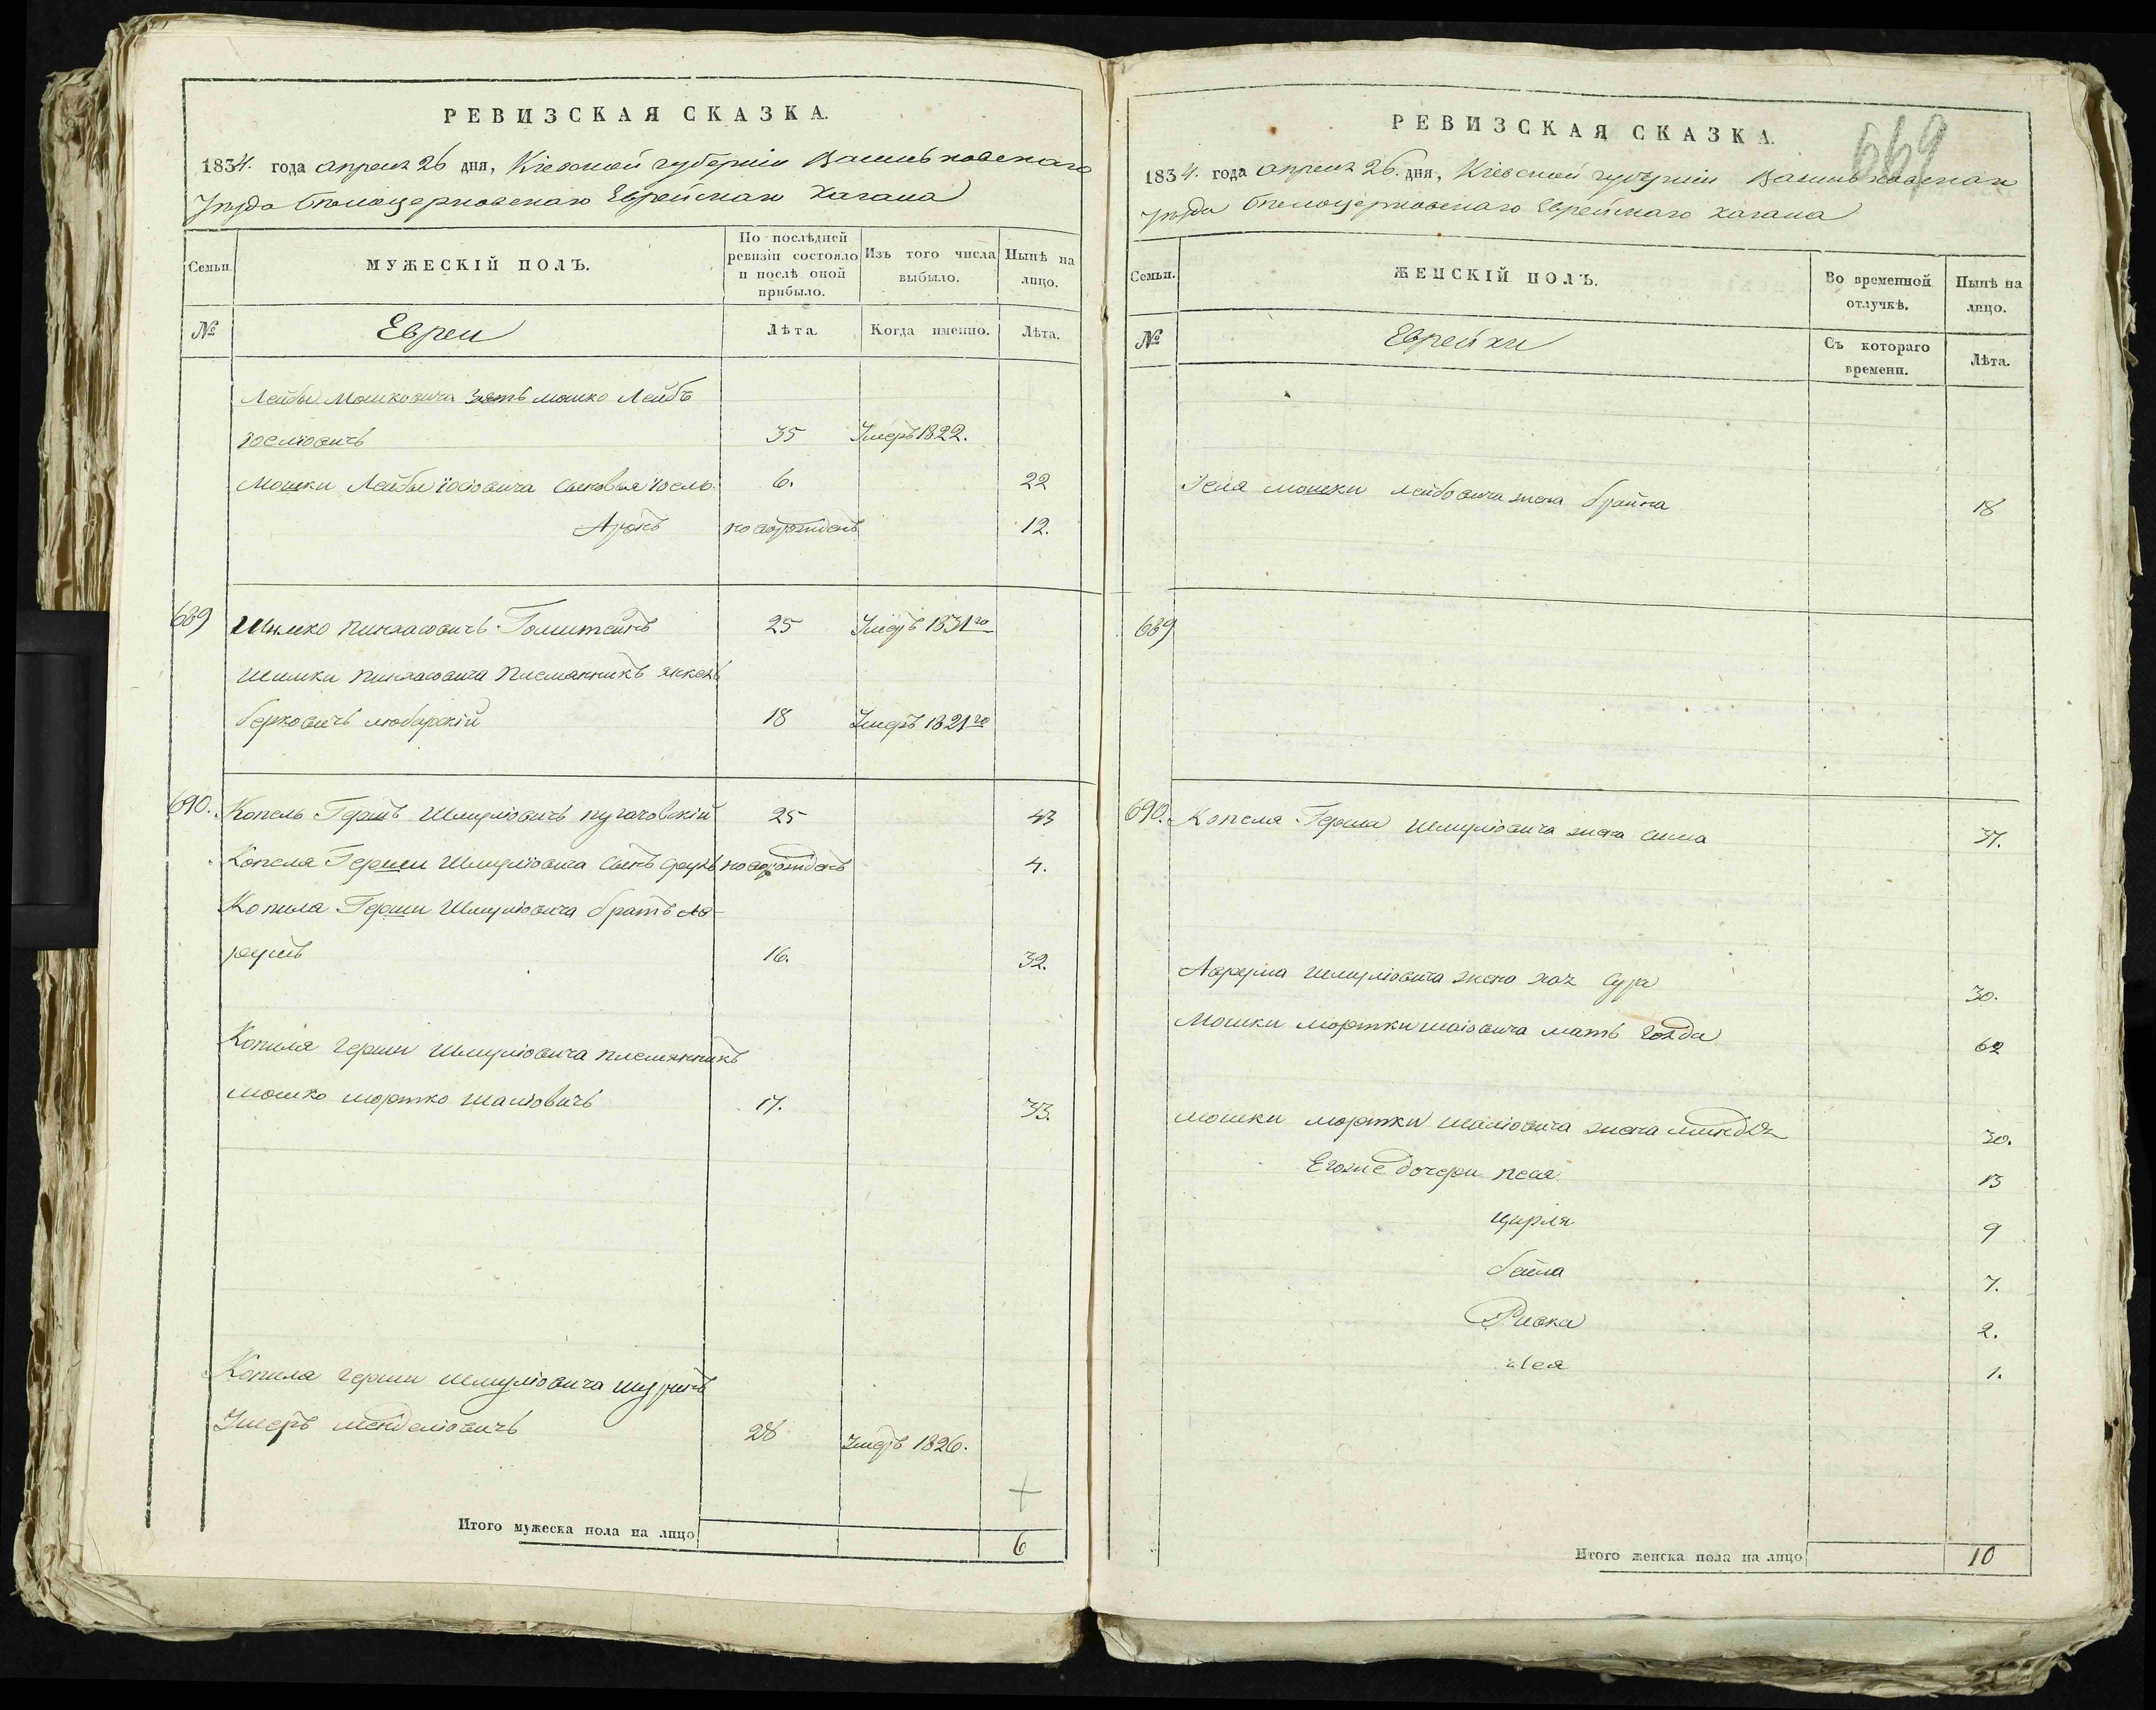 РЕВИЗСКАЯ СКАЗКА.
1834. года апреля 26 дня, Кіевской губерніи Васильковскаго
Уезда белоцерковскаго Еврейскаго Кагала
Семьи.
МУЖЕСКІЙ ПОЛЪ.
По послѣдней ревизіи состояло и послѣ оной прибыло.
Изъ того числа выбыло.
Нынѣ на лицо.
№
Евреи
Лѣта.
Когда именно.
Лѣта.
Лейбы Мошковича зять мошко Лейбъ
Іослювичъ 35 Умеръ 1822.
Мошки Лейбы Іосіовича сыновья Іосль 6. 22
Аронъ новорожденъ 12.
689 Шимко Пинхасовичъ 25 Умеръ 1831го
Шимки Пинхасовича Племянникъ янкель
берковичъ любарскій 18 Умеръ 1821го
690. Копель Гершъ Шмуліовичъ пугачовскій 25 43
Копеля Герши Шмуліовича сынъ новорожденъ 4.
Копила Герши Шмуліовича братъ Ав-
румъ 16. 32.
Копиля герши Шмуліовича племянникъ
мошко мортко 17. 33.
Копила герши шмуліовича шуринъ
менделіовичъ 28 умеръ 1826.
+
Итого мужеска пола на лицо 6
РЕВИЗСКАЯ СКАЗКА.
669
1834. года апреля 26. дня, Кіевской губерніи Васильковскаго
Уезда белоцерковскаго Еврейскаго кагала
Семьи.
ЖЕНСКІЙ ПОЛЪ.
Во временной отлучкѣ.
Нынѣ на лицо.
№
Еврейки
Съ котораго времени.
Лѣта.
мошки лейбовича жена брайна 18
689
690. Копеля Герша шмуліовича жена сима 37.
Аврума шмуліовича жена хая Сура 30.
Мошки мортки мать голда 62
мошки мортки жена 30.
Егоже дочери песя 13
цирля 9
бейла 7.
Ривка 2.
лея 1.
Итого женска пола на лицо 10